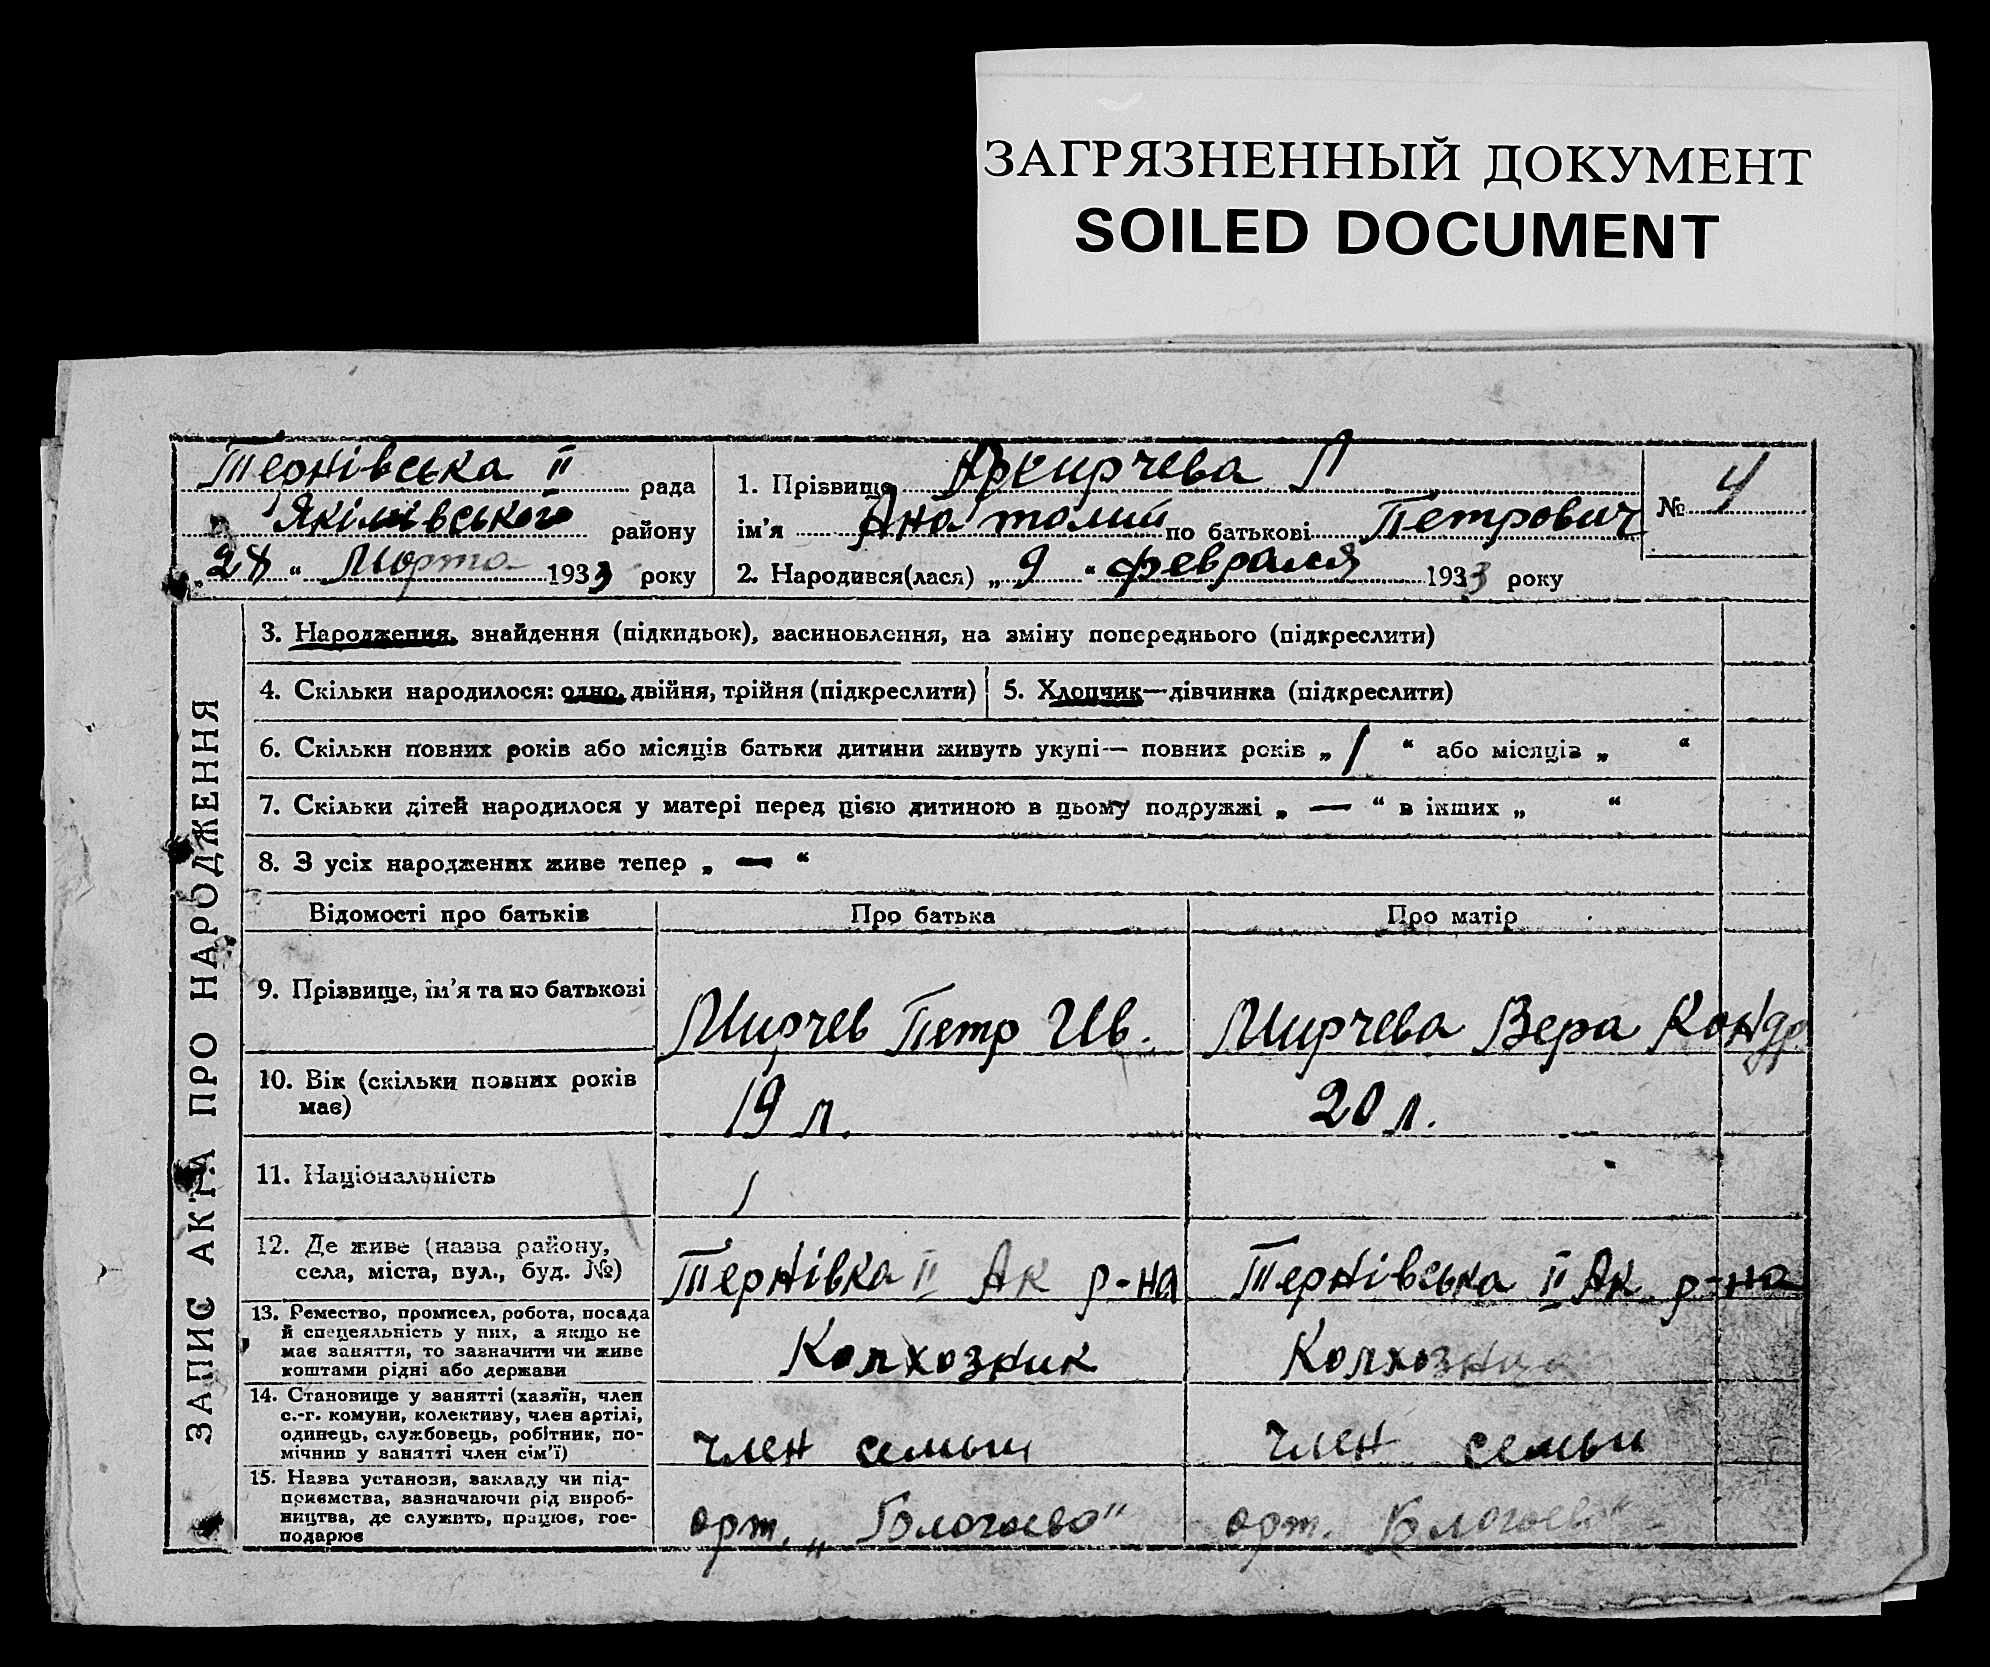 ЗАГРЯЗНЕННЫЙ ДОКУМЕНТ
SOILED DOCUMENT
Тернівська II рада
Якімівського району
„28“ Марта 1933 року
1. Прізвище
ім'я Анатолий по батькові Петрович
2. Народився(лася) „9“ февраля 1933 року
№ 4
ЗАПИС АКТА ПРО НАРОДЖЕННЯ
3. Народження, знайдення (підкидьок), засиновлення, на зміну попереднього (підкреслити)
4. Скільки народилося: одно, двійня, трійня (підкреслити)
5. Хлопчик—дівчинка (підкреслити)
6. Скільки повних років або місяців батьки дитини живуть укупі— повних років „1“ або місяців „ “
7. Скільки дітей народилося у матері перед цією дитиною в цьому подружжі „—“ в інших „ “
8. З усіх народжених живе тепер „—“
Відомості про батьків Про батька Про матір
9. Прізвище, ім'я та по батькові
Мирчев Петр Ив. Мирчева Вера Кондр.
10. Вік (скільки повних років
має)
19 л. 20 л.
11. Національність
12. Де живе (назва району,
села, міста, вул., буд. №)
Тернівка II Ак р-на Тернівська II Ак. р-на
13. Ремество, промисел, робота, посада
й спецеяльність у них, а якщо не
має заняття, то зазначити чи живе
коштами рідні або держави
Колхозник Колхозница
14. Становище у занятті (хазяїн, член
с.-г. комуни, колективу, член артілі,
одинець, службовець, робітник, по-
мічник у занятті член сім'ї)
член семьи член семьи
15. Назва установи, закладу чи під-
приємства, зазначаючи рід вироб-
ництва, де служить, працює, гос-
подарює
орт. орт.